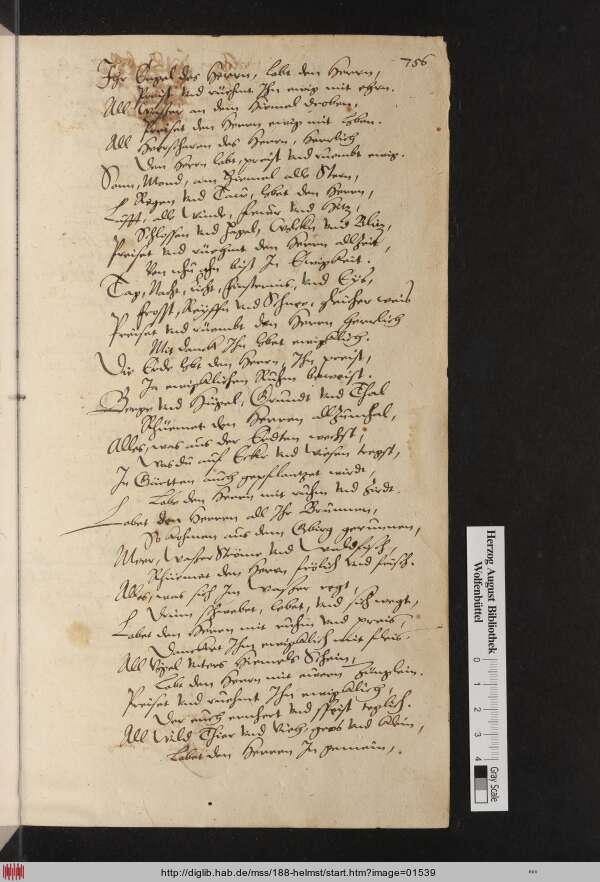 756
Ihr Engel des Herrn, lobt den Herrn,
Preist und rühmet Ihn ewig mit ehrn.
All Wasser an dem Himel droben,
Preiset den Herrn ewig mit loben.
All Heerscharen des Herrn, herrlich
Den Herrn lobt, preist und ruembt ewig.
Sonn, Mond, am Himel alle Stern,
Regen und Taw, lobet den Herrn,
Lufft, all Winde, Feuer und Hitz,
Schlossen und Hagel, Wolken und Blitz,
Preiset und rüehmet den Herrn allzeit,
Von nhu bist In Ewigkeit.
Tag, Nacht, licht, finsternis, und Eys,
Frost, Reyffen und Schnee, gleicher weis
Preiset und rüembt den Herrn herrlich
Mit danck Ihn lobet ewigklich.
Die Erde lobt den Herrn, Ihn preist,
In ewigklichen Ruhm beweist.
Berge und Hügel, Grundt und Thal
Rhüemet den Herren allzumhal,
Alles, was aus der Erdten wechst,
Was du auf Ecker und Wiesen tregst,
In Gärtten auch gepflantzet wirdt,
Lobe den Herrn mit ruhm und
Lobet den Herren all Ihr Brunnen,
So kohmen aus dem Gbirg gerunnen,
Meer, Wasser Ströme und
Rhüemet den Herrn frölich und frisch.
Alles, was sich Im Wasser regt,
Drinn schwebet, lebet, und sich wegt,
Lobet den Herrn mit ruhm und preis,
Dancket Ihm ewigklich mit fleis.
All Vögel unters Himels Schein,
Lobt den Herrn mit eurem Zünglein.
Preiset und ruehmet Ihn ewigklich,
Der euch ernehret und speist teglich.
All Wild Thier und Vieh, gros und klein,
Lobet den Herren In gemein,
Herzog August Bibliothek
Wolfenbüttel
0 1 2 3 4
Gray Scale
http://diglib.hab.de/mss/188-helmst/start.htm?image=01539